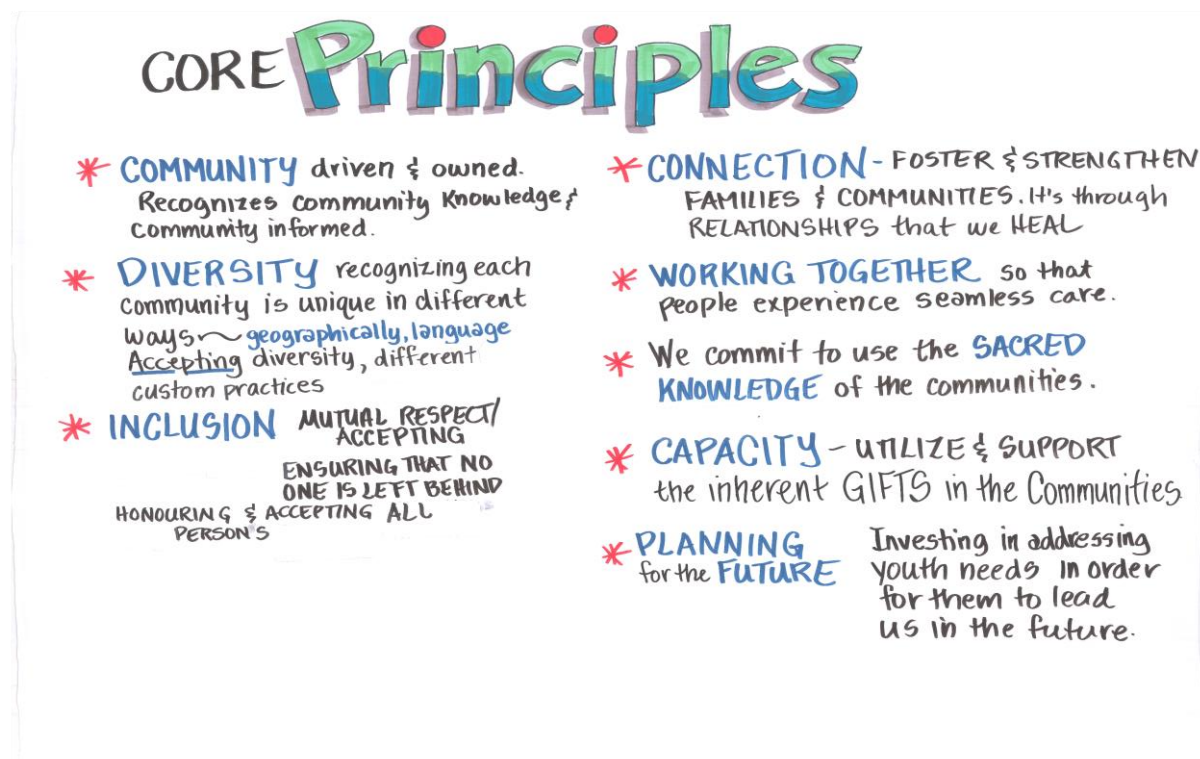 CORE Principles
* COMMUNITY driven & owned.
Recognizes Community Knowledge &
Community informed.
* DIVERSITY recognizing each
Community is unique in different
ways~ geographically, language
Accepting diversity, different
custom practices
* INCLUSION MUTUAL RESPECT/
ACCEPTING
ENSURING THAT NO
ONE IS LEFT BEHIND
HONOURING & ACCEPTING ALL
PERSON'S
* CONNECTION - FOSTER & STRENGTHEN
FAMILIES & COMMUNITIES. It's through
RELATIONSHIPS that we HEAL
* WORKING TOGETHER so that
people experience seamless care.
* We commit to use the SACRED
KNOWLEDGE of the communities.
* CAPACITY - UTILIZE & SUPPORT
the inherent GIFTS in the Communities
* PLANNING
for the FUTURE
Investing in addressing
youth needs in order
for them to lead
us in the future.